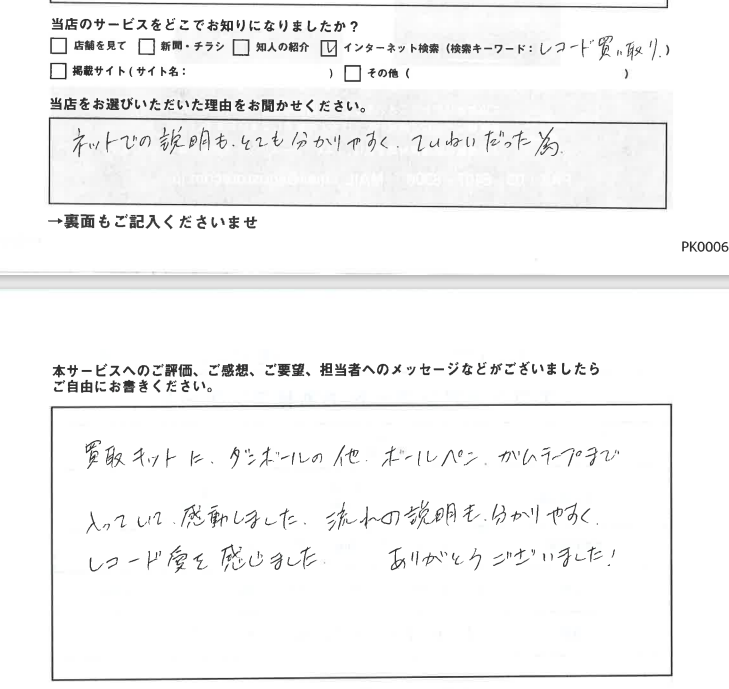 当店のサービスをどこでお知りになりましたか？
□ 店舗を見て □ 新聞・チラシ □ 知人の紹介 ☑ インターネット検索（検索キーワード：レコード買い取り。）
□ 掲載サイト（サイト名：　　　　　　） □ その他（　　　　　　　　）
当店をお選びいただいた理由をお聞かせください。
ネットでの説明も、とても分かりやすく、ていねいだった為。
→裏面もご記入くださいませ
PK0006
本サービスへのご評価、ご感想、ご要望、担当者へのメッセージなどがございましたら
ご自由にお書きください。
買取キットに、ダンボールの他、ボールペン、ガムテープまで
入っていて、感動しました。流れの説明も、分かりやすく、
レコード愛を感じました。　ありがとうございました！